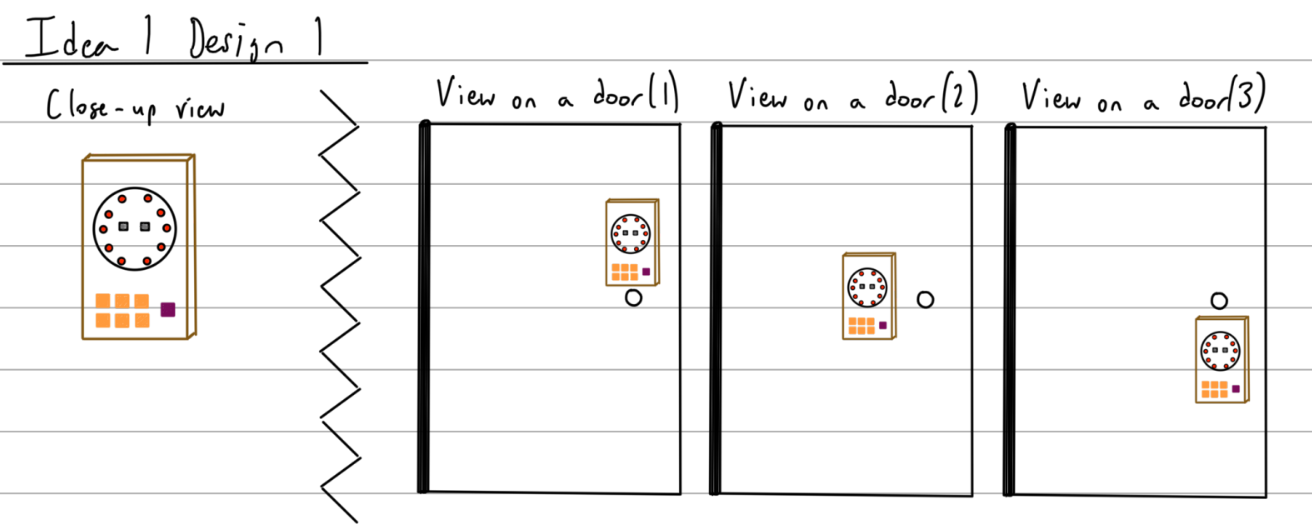 Idea 1 Design 1
Close-up view
View on a door(1)
View on a door(2)
View on a door(3)